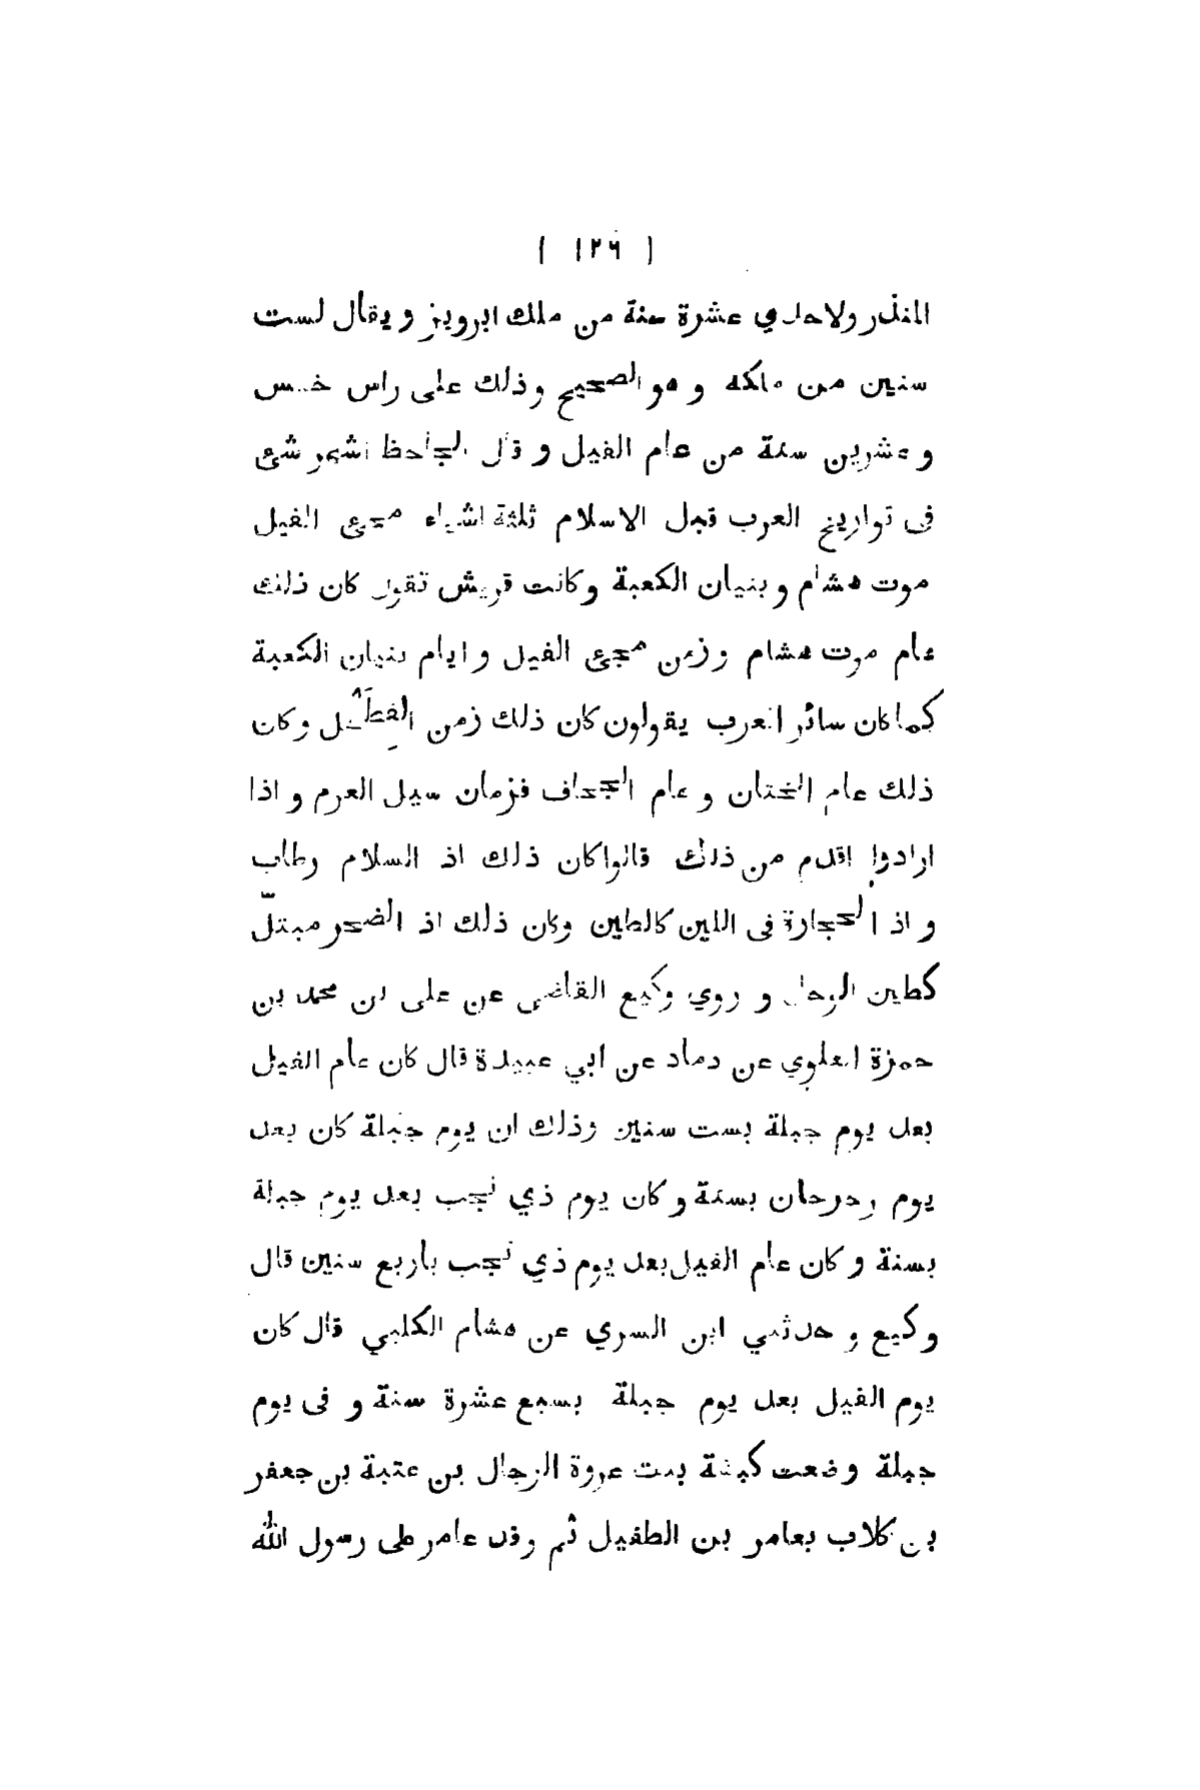 ( ١٢٦ )
المنذر ولاحدي عشرة سنة من ملك ابرويز ويقال لست
سنين من ملكه وهو الصحيح وذلك على راس خمس
وعشرين سنة من عام الفيل وقال الجاحظ اشهر شئ
فى تواريخ العرب قبل الاسلام ثلثة اشياء مجئ الفيل
موت هشام وبنيان الكعبة وكانت قريش تقول كان ذلك
عام موت هشام وزمن مجئ الفيل وايام بنيان الكعبة
كما كان سائر العرب يقولون كان ذلك زمن الفِطَحْل وكان
ذلك عام الختان وعام الجحاف فزمان سيل العرم واذا
ارادوا اقدم من ذلك قالوا كان ذلك اذ السلام رطاب
واذ الحجارة فى اللين كالطين وكان ذلك اذ الضخر مبتلّ
كطين الوحل وروي وكيع القاضى عن على بن محمد بن
حمزة العلوي عن دماد عن ابي عبيدة قال كان عام الفيل
بعد يوم جبلة بست سنين وذلك ان يوم جبلة كان بعد
يوم رحرحان بسنة وكان يوم ذي نجب بعد يوم جبلة
بسنة وكان عام الفيل بعد يوم ذي نجب باربع سنين قال
وكيع وحدثني ابن السري عن هشام الكلبي قال كان
يوم الفيل بعد يوم جبلة بسبع عشرة سنة وفى يوم
جبلة وضعت كبشة بنت عروة الرحال بن عتبة بن جعفر
بن كلاب بعامر بن الطفيل ثم وفد عامر على رسول الله